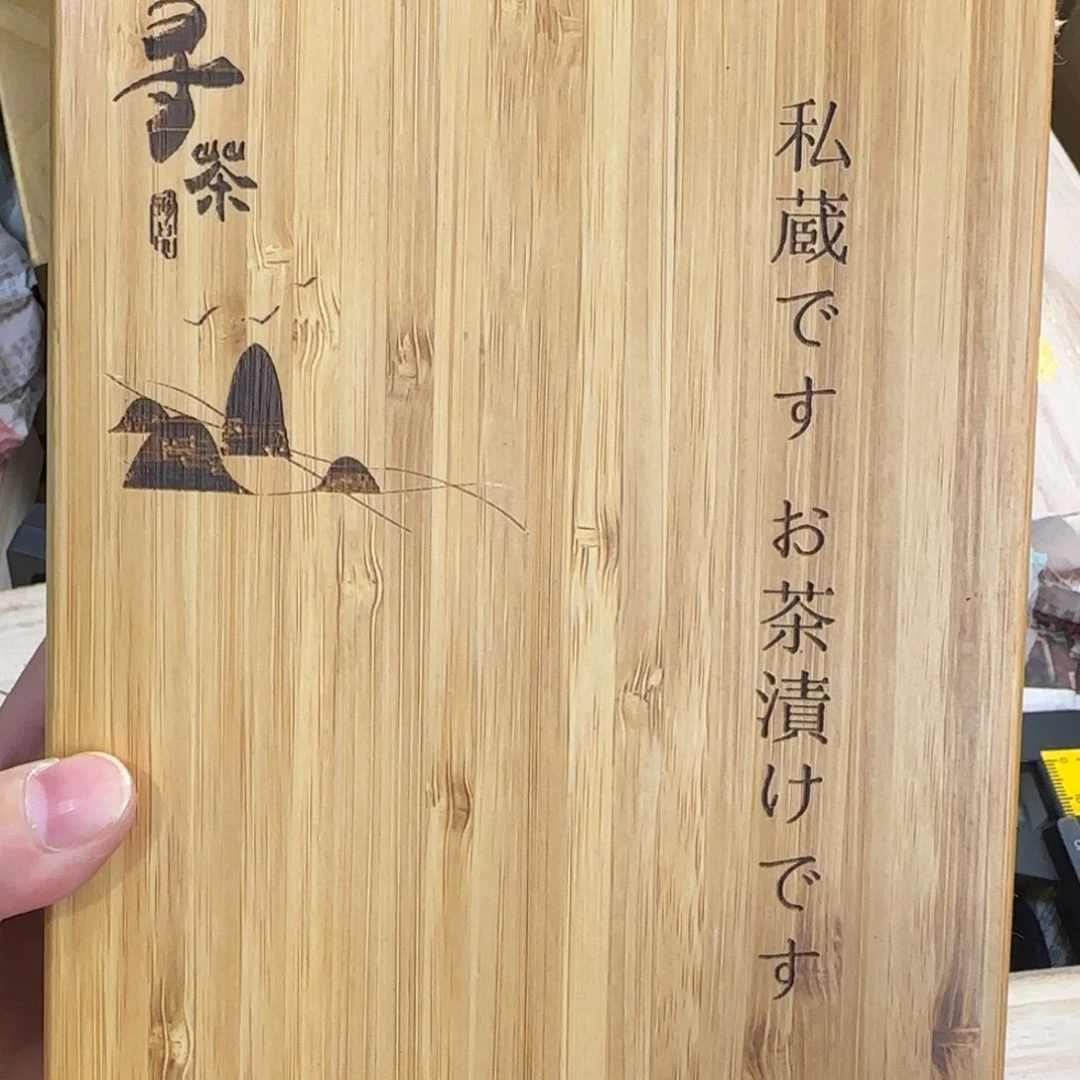 私蔵です お茶漬けです
寻
茶